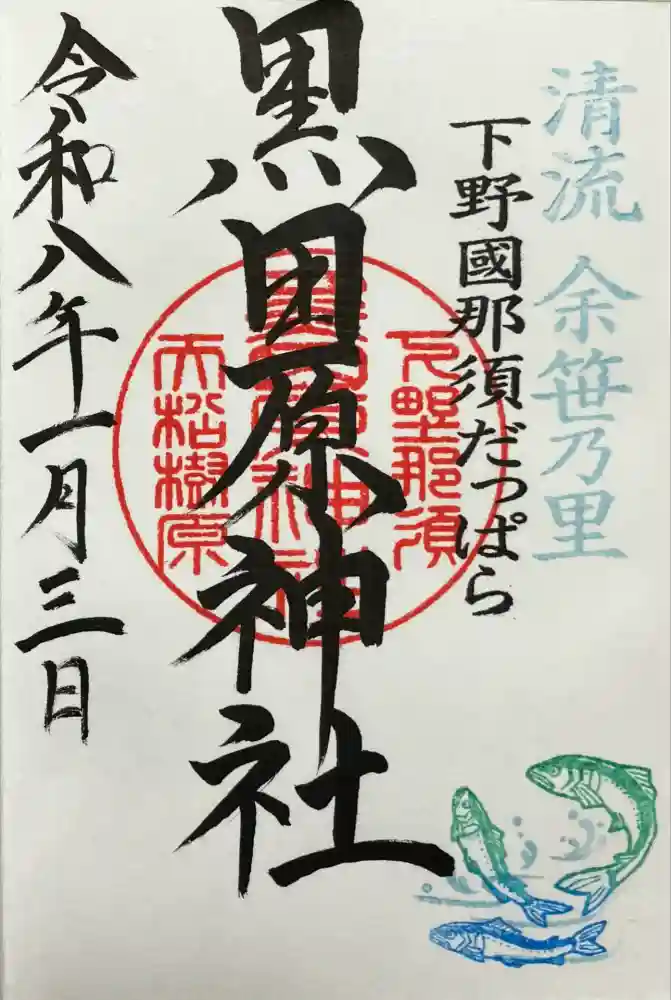 清流 余笹乃里
下野國那須だっぱら
黒田原神社
下野那須
黒田原神社
大松樹原
令和八年一月三日